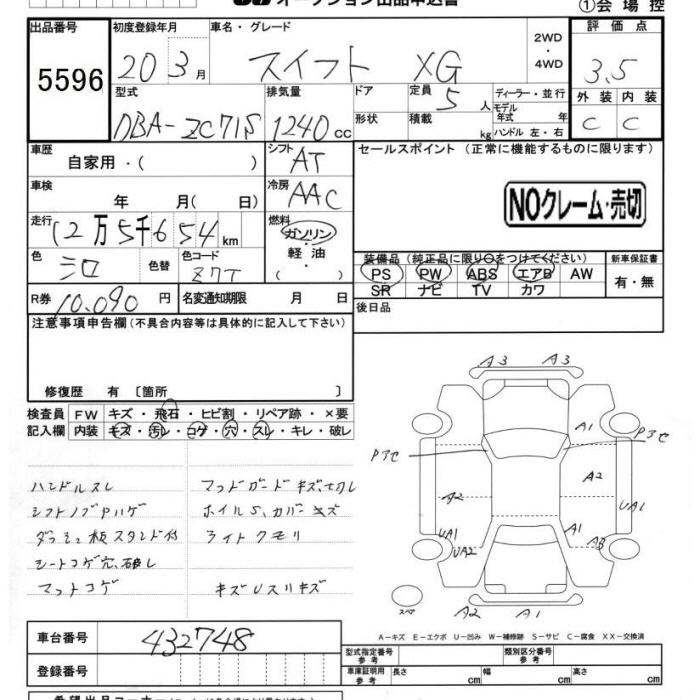 オークション出品申込書
①会場控
出品番号 初度登録年月 車名・グレード 2WD・4WD 評価点
5596 20 3月 スイフト XG 3.5
型式 排気量 ドア 定員 5人 ディーラー・並行 外装 内装
DBA-ZC71S 1240cc 形状 積載 kg モデル年式 年 ハンドル 左・右 C C
車歴 自家用・( ) シフト AT セールスポイント (正常に機能するものに限ります)
車検 年 月( 日) 冷房 AAC NOクレーム・売切
走行 12万5千654km 燃料 ガソリン・軽油・( )
装備品 (純正品に限り○をつけてください) 新車保証書
色 シロ 色替 色コード Z7T PS PW ABS エアB AW 有・無
SR ナビ TV カワ
R券 10,090円 名変通知期限 月 日 後日品
注意事項申告欄(不具合内容等は具体的に記入して下さい)
修復歴 有 〔箇所 〕
検査員記入欄 FW キズ・飛石・ヒビ割・リペア跡・×要
内装 キズ・汚レ・コゲ・穴・スレ・キレ・破レ
ハンドルスレ マッドガードキズ、切レ
シフトノブPハゲ ホイルS、カバーキズ
ダッシュ板スタンド付 ライトクモリ
シートコゲ穴、破レ
マットコゲ キズUスリキズ
A3 A3
A1
Pアセ Pアセ
A2 A2
UA1 UA1
UA2 A1 A3
スペ A2 A1
A-キズ E-エクボ U-凹み W-補修跡 S-サビ C-腐食 XX-交換済
車台番号 432748
型式指定番号 参考 類別区分番号 参考
登録番号
車庫証明用 参考 長さ cm 幅 cm 高さ cm
希望出品コーナー